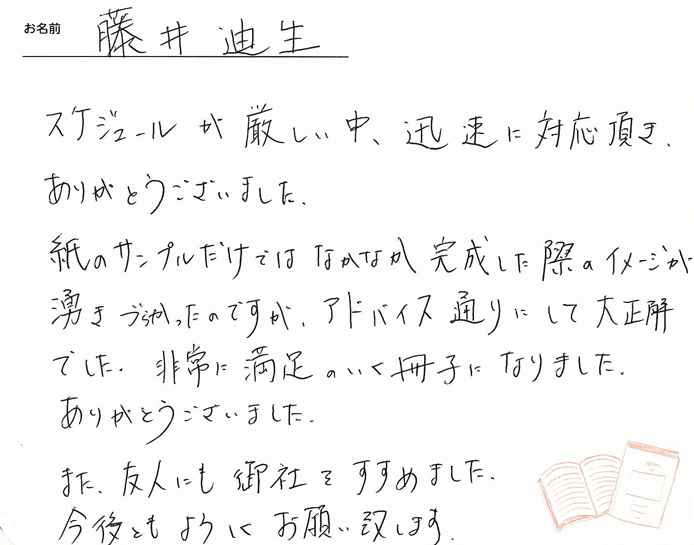 お名前 藤井 迪生
スケジュールが厳しい中、迅速に対応頂き、
ありがとうございました。
紙のサンプルだけではなかなか完成した際のイメージが
湧きづらかったのですが、アドバイス通りにして大正解
でした。非常に満足のいく冊子になりました。
ありがとうございました。
また、友人にも御社をすすめました。
今後ともよろしくお願い致します。